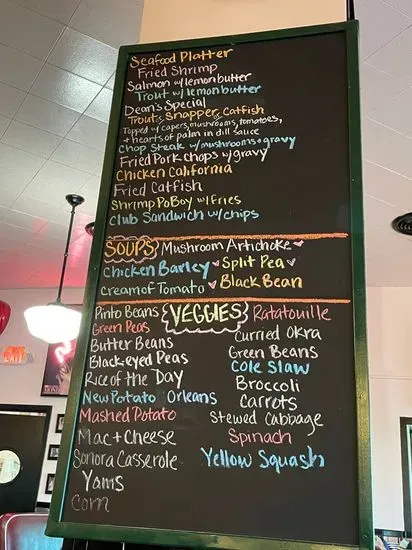 Seafood Platter
Fried Shrimp
Salmon w/ lemon butter
Trout w/ lemon butter
Dean's Special
Trout, Snapper, Catfish
Topped w/ capers, mushrooms, tomatoes,
+ hearts of palm in dill sauce
Chop Steak w/ mushrooms + gravy
Fried Pork chops w/ gravy
Chicken California
Fried Catfish
Shrimp Po Boy w/ Fries
Club Sandwich w/ chips
SOUPS Mushroom Artichoke
Chicken Barley Split Pea
Cream of Tomato Black Bean
VEGGIES
Pinto Beans
Green Peas
Butter Beans
Black eyed Peas
Rice of the Day
New Potato Orleans
Mashed Potato
Mac + Cheese
Sonora Casserole
Yams
Corn
Ratatouille
Curried Okra
Green Beans
Cole Slaw
Broccoli
Carrots
Stewed Cabbage
Spinach
Yellow Squash
EXIT